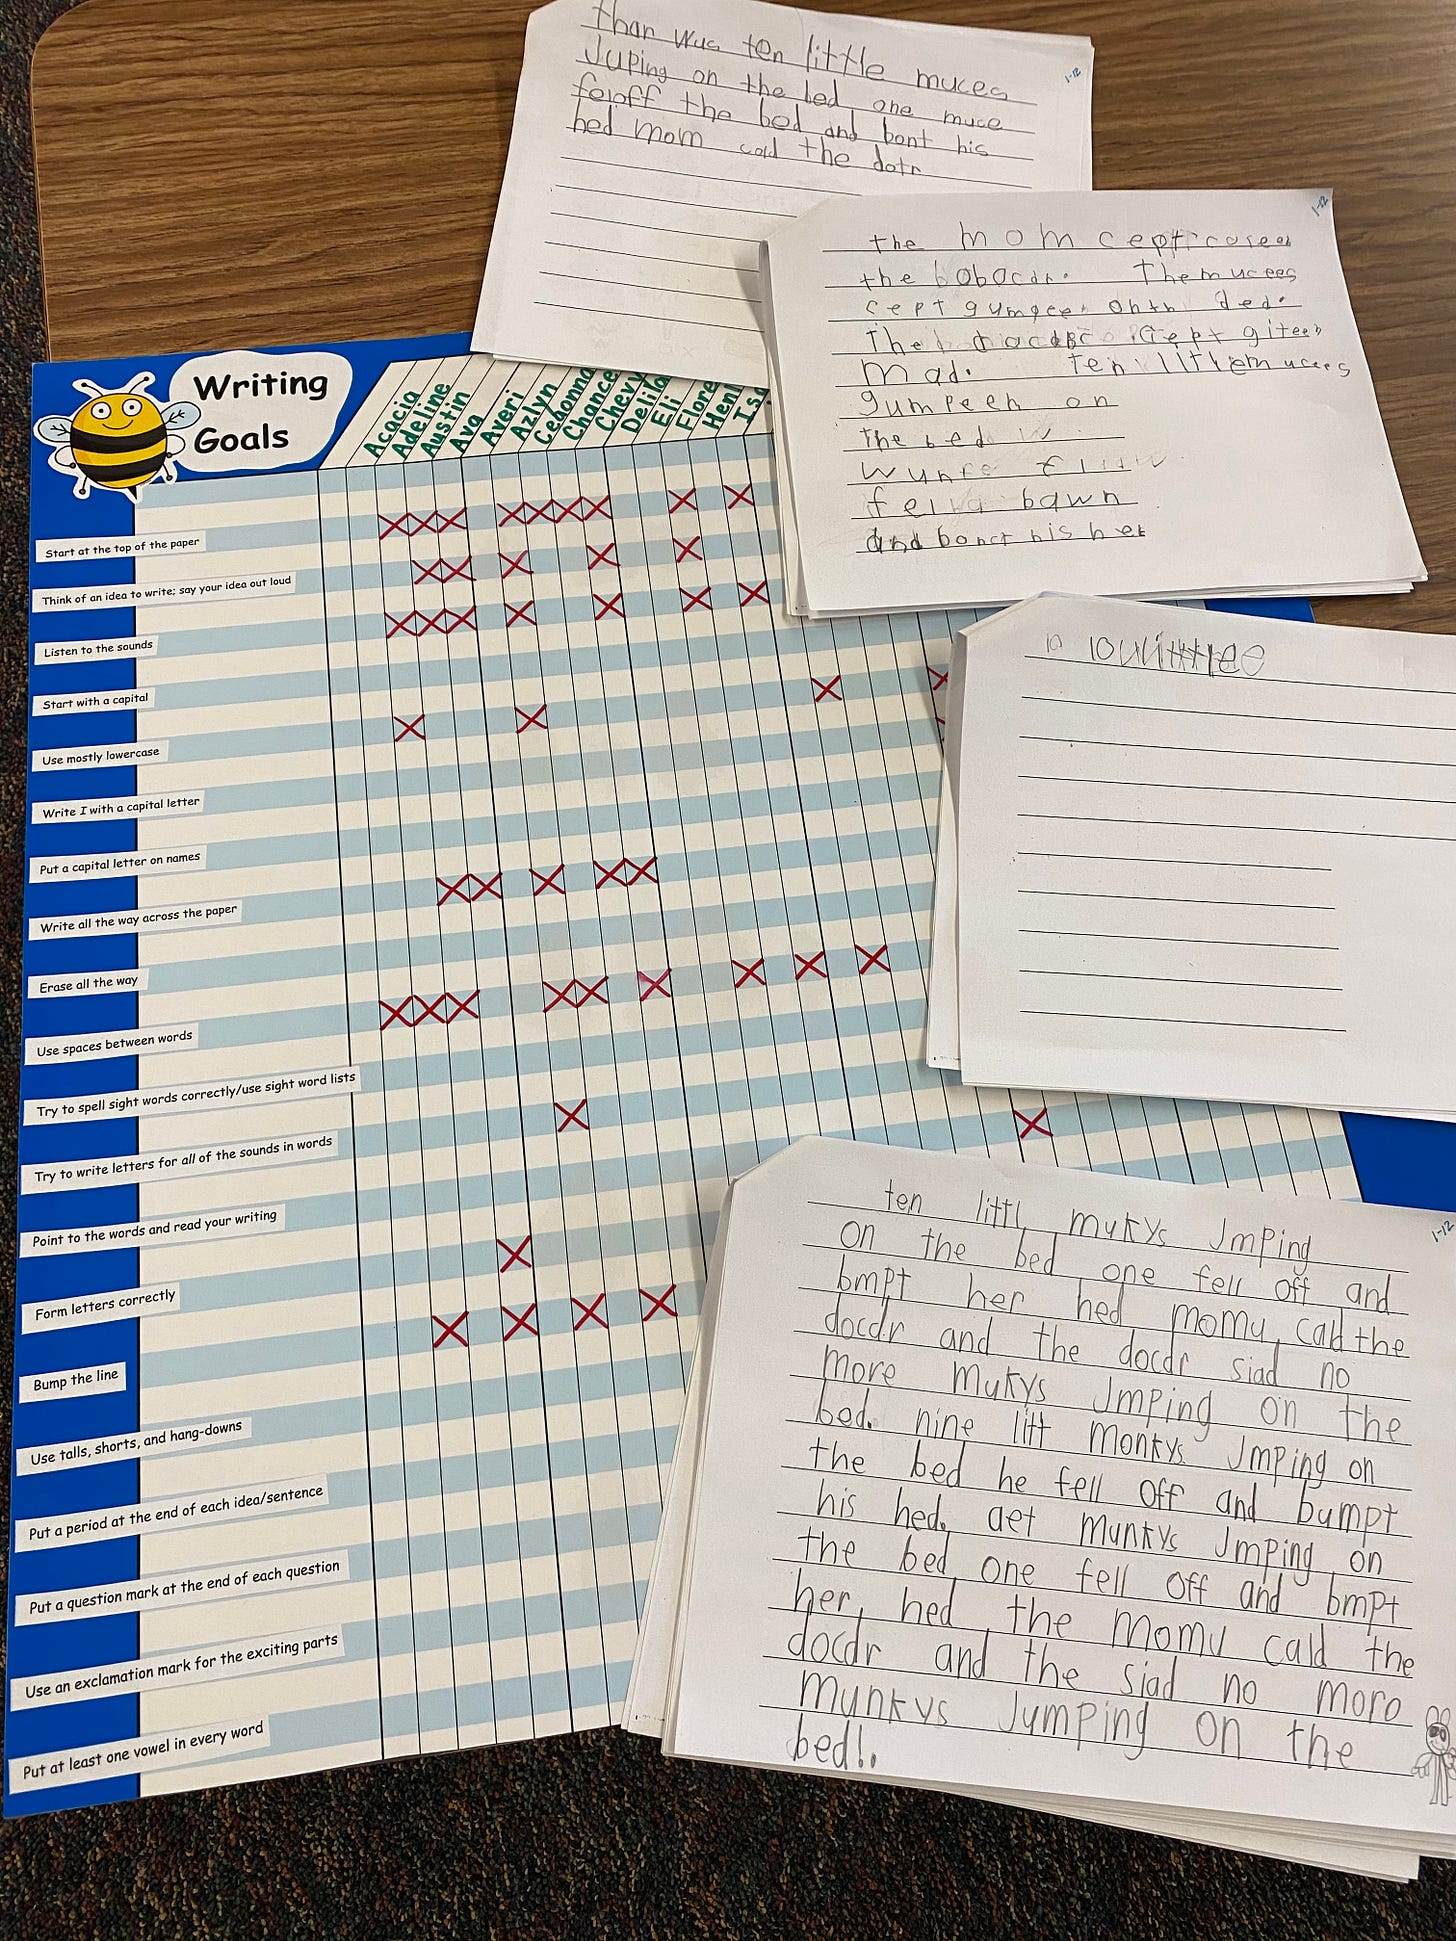 than wus ten little muces
Juping on the bed one muce
feloff the bed and bont his
hed mom cald the dotr
1-12
the mom cept
the Themucees
cept gumpeen ded.
The cept giteen
mad. ten
gumpeen on
the bed
wunce
fell bawn
and bonct his het
1-12
10
Writing
Goals
Acacia
Adeline
Austin
Ava
Averi
Azlyn
Ceonna
Chance
Chevy
Delila
Eli
Flore
Henl
Isa
Start at the top of the paper
Think of an idea to write; say your idea out loud
Listen to the sounds
Start with a capital
Use mostly lowercase
Write I with a capital letter
Put a capital letter on names
Write all the way across the paper
Erase all the way
Use spaces between words
Try to spell sight words correctly/use sight word lists
Try to write letters for all of the sounds in words
Point to the words and read your writing
Form letters correctly
Bump the line
Use talls, shorts, and hang-downs
Put a period at the end of each idea/sentence
Put a question mark at the end of each question
Use an exclamation mark for the exciting parts
Put at least one vowel in every word
ten littl mukys Jmping
on the bed one fell off and
bmpt her hed momy cald the
docdr and the docdr siad no
more mukys Jmping on the
bed. nine litt monkys Jmping on
the bed he fell off and bumpt
his hed. aet munkys Jmping on
the bed one fell off and bmpt
her hed the momy cald the
docdr and the siad no moro
munkys Jumping on the
bed!.
1-12